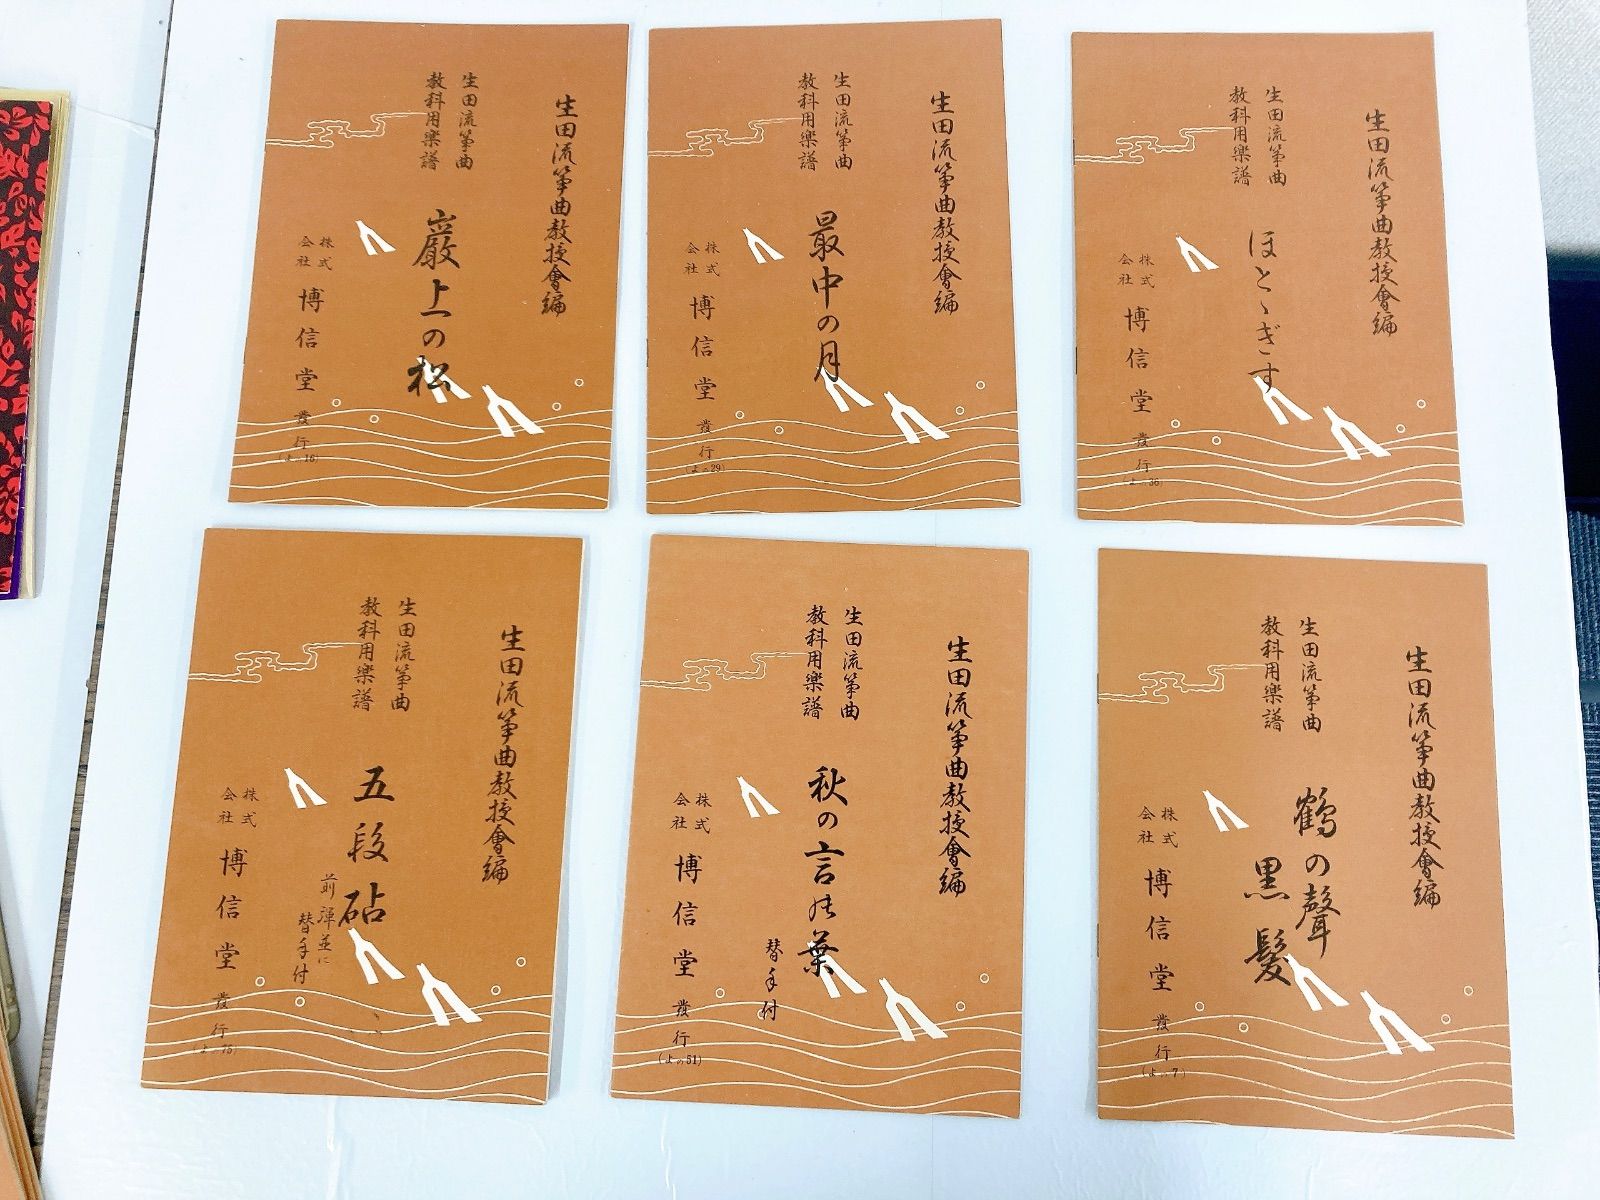 生田流箏曲教授會編
生田流箏曲
教科用樂譜
巌上の松
株式
会社
博信堂發行
(よの16)
生田流箏曲教授會編
生田流箏曲
教科用樂譜
最中の月
株式
会社
博信堂發行
(よの29)
生田流箏曲教授會編
生田流箏曲
教科用樂譜
ほとゝぎす
株式
会社
博信堂發行
(よの36)
生田流箏曲教授會編
生田流箏曲
教科用樂譜
五段砧
前弾並に
替手付
株式
会社
博信堂發行
(よの75)
生田流箏曲教授會編
生田流箏曲
教科用樂譜
秋の言の葉
替手付
株式
会社
博信堂發行
(よの51)
生田流箏曲教授會編
生田流箏曲
教科用樂譜
鶴の聲
黒髪
株式
会社
博信堂發行
(よの7)